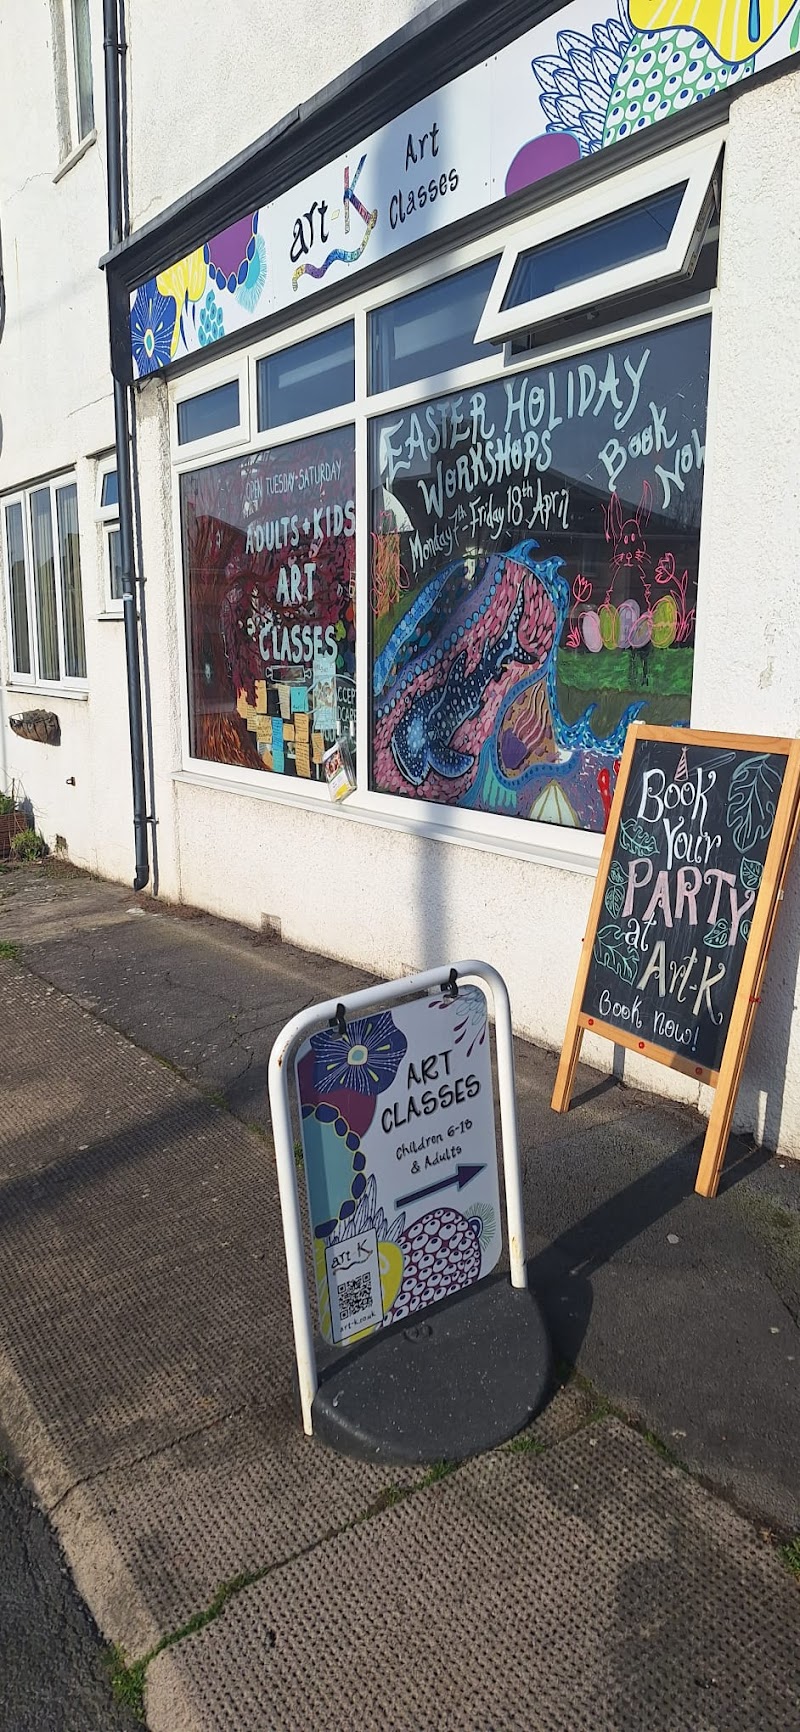 art-K
Art
Classes
EASTER HOLIDAY
WORKSHOPS
Monday 7th - Friday 18th April
Book
Now
OPEN TUESDAY-SATURDAY
ADULTS + KIDS
ART
CLASSES
Book
Your
PARTY
at
Art-K
Book Now!
ART
CLASSES
Children 6-18
& Adults
art-K
art-k.co.uk